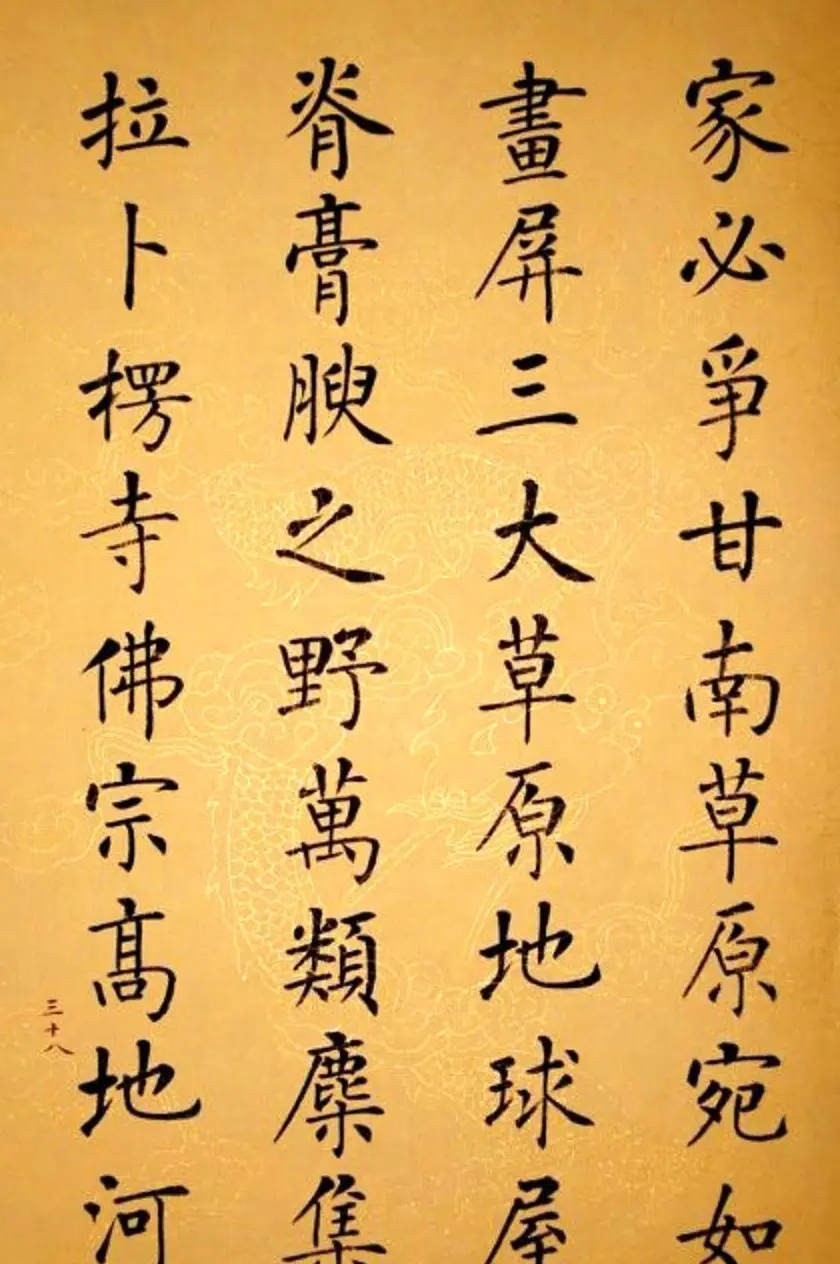 家必爭甘南草原宛如
畫屏三大草原地球屋
脊膏腴之野萬類麇集
拉卜楞寺佛宗高地河
三十八